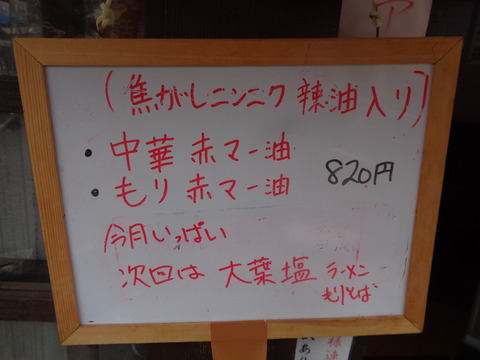 ア
(焦がしニンニク 辣油入り)
・中華 赤マー油
・もり 赤マー油
820円
今月いっぱい
次回は 大葉塩 ラーメン
もりそば